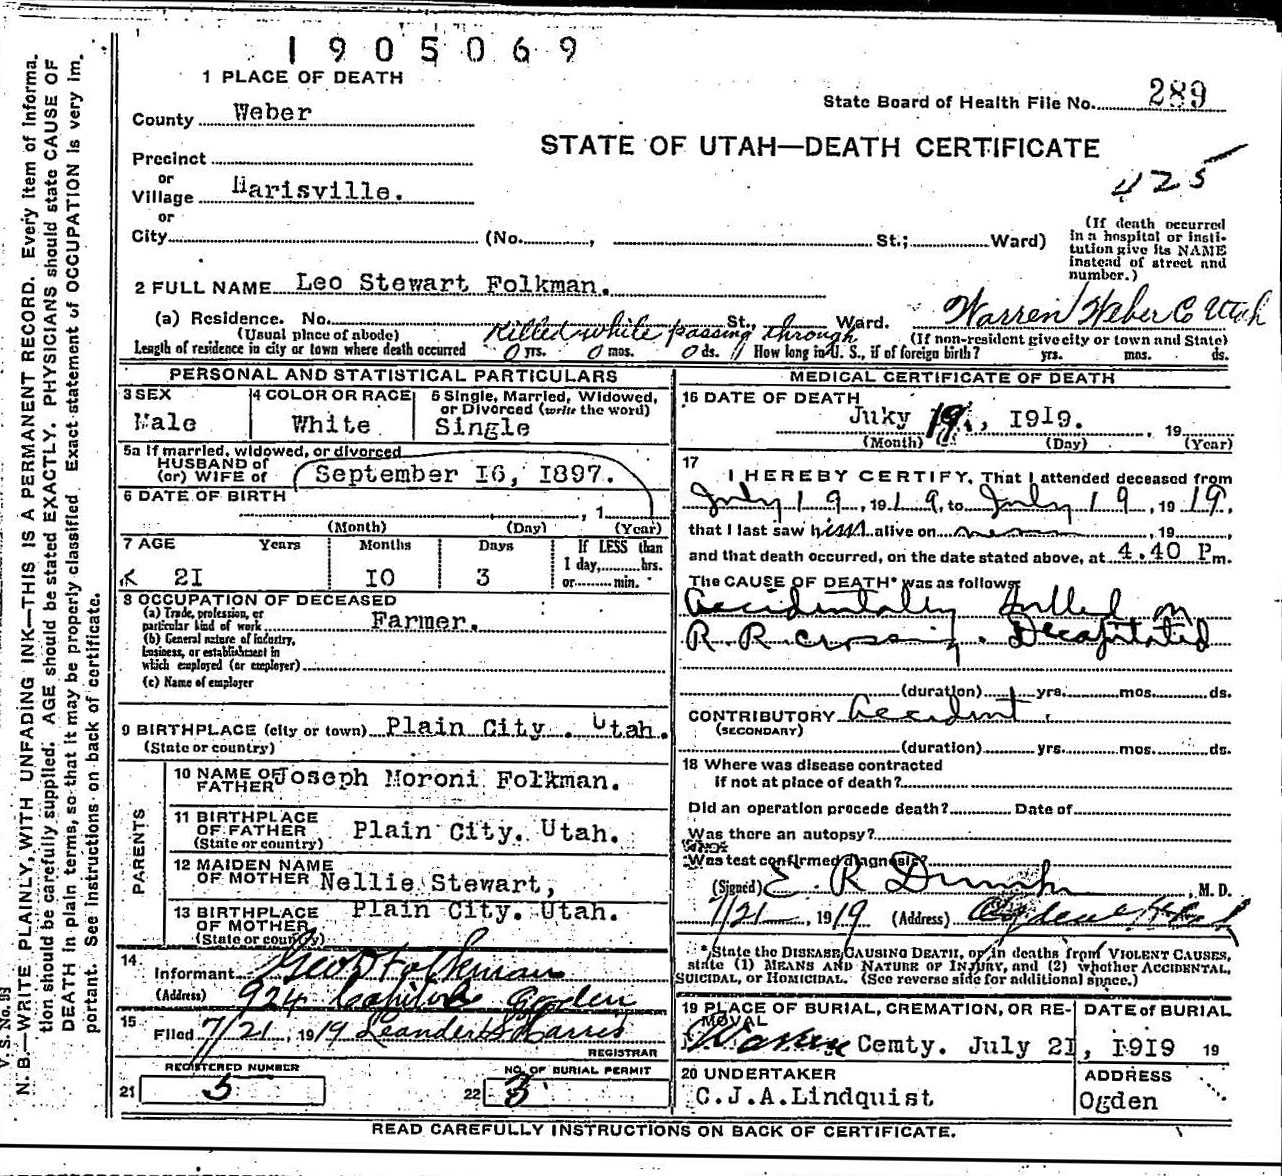 1905069
1 PLACE OF DEATH
State Board of Health File No. 289
County Weber
STATE OF UTAH—DEATH CERTIFICATE
Precinct
425
or
Village Harisville.
or
City (No. , St.; Ward)
(If death occurred in a hospital or insti-
tution give its NAME
instead of street and
number.)
2 FULL NAME Leo Stewart Folkman.
(a) Residence. No. St., Ward. Warren Weber Co Utah
(Usual place of abode) Killed while passing through (If non-resident give city or town and State)
Length of residence in city or town where death occurred 0 yrs. 0 mos. 0 ds. How long in U. S., if of foreign birth? yrs. mos. ds.
PERSONAL AND STATISTICAL PARTICULARS
3 SEX 4 COLOR OR RACE 5 Single, Married, Widowed,
or Divorced (write the word)
Male White Single
5a If married, widowed, or divorced
HUSBAND of
(or) WIFE of September I6, I897.
6 DATE OF BIRTH
, 1
(Month) (Day) (Year)
7 AGE Years Months Days If LESS than
1 day, hrs.
or min.
2I IO 3
8 OCCUPATION OF DECEASED
(a) Trade, profession, or
particular kind of work Farmer.
(b) General nature of industry,
business, or establishment in
which employed (or employer)
(c) Name of employer
9 BIRTHPLACE (city or town) Plain City. Utah.
(State or country)
PARENTS
10 NAME OF
FATHER Joseph Moroni Folkman.
11 BIRTHPLACE
OF FATHER Plain City. Utah.
(State or country)
12 MAIDEN NAME
OF MOTHER Nellie Stewart,
13 BIRTHPLACE Plain City. Utah.
OF MOTHER
(State or country)
14
Informant Geo Folkman
(Address) 924 Capitol Ogden
15
Filed 7/21, 1919 Leander S Harris
REGISTRAR
REGISTERED NUMBER NO. OF BURIAL PERMIT
21 5 22 3
MEDICAL CERTIFICATE OF DEATH
16 DATE OF DEATH
Juky 19, I9I9. 19
(Month) (Day) (Year)
17
I HEREBY CERTIFY, That I attended deceased from
July 19, 1919, to July 19, 1919,
that I last saw him alive on , 19 ,
and that death occurred, on the date stated above, at 4.40 Pm.
The CAUSE OF DEATH* was as follows:
Accidentally Killed on
R R crossing. Decapitated
(duration) yrs. mos. ds.
CONTRIBUTORY Accident.
(SECONDARY)
(duration) yrs. mos. ds.
18 Where was disease contracted
if not at place of death?
Did an operation precede death? Date of
Was there an autopsy?
Was test confirmed diagnosis?
(Signed) E. R. Dumke, M. D.
7/21, 1919 (Address) Ogden Utah
*State the DISEASE CAUSING DEATH, or, in deaths from VIOLENT CAUSES,
state (1) MEANS AND NATURE OF INJURY, and (2) whether ACCIDENTAL,
SUICIDAL, or HOMICIDAL. (See reverse side for additional space.)
19 PLACE OF BURIAL, CREMATION, OR RE-
MOVAL DATE of BURIAL
Warren Cemty. July 2I, I9I9 19
20 UNDERTAKER ADDRESS
C.J.A.Lindquist Ogden
READ CAREFULLY INSTRUCTIONS ON BACK OF CERTIFICATE.
V. S. No.
N. B.—WRITE PLAINLY, WITH UNFADING INK—THIS IS A PERMANENT RECORD. Every item of informa-
tion should be carefully supplied. AGE should be stated EXACTLY. PHYSICIANS should state CAUSE OF
DEATH in plain terms, so that it may be properly classified. Exact statement of OCCUPATION is very im-
portant. See instructions on back of certificate.